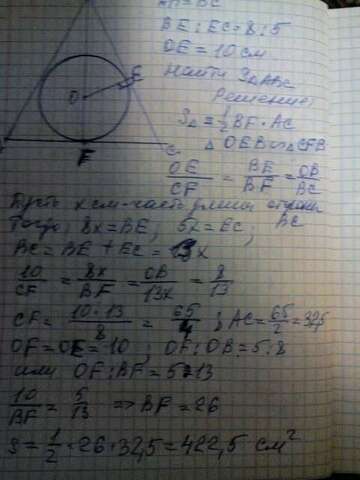 AB=BC
BE:EC=8:5
OE=10см
Найти SΔABC
Решение:
SΔ=½BF·AC
ΔOEB∾ΔCFB
OE/CF = BE/BF = OB/BC
Пусть x см-часть длины стороны BC
Тогда, 8x=BE; 5x=EC;
BC=BE+EC=13x
10/CF = 8x/BF = OB/13x = 8/13
CF= 10·13/8 = 65/4; AC=65/2=32,5
OF=OE=10; OF:OB=5:8
или OF:BF=5:13
10/BF = 5/13 => BF=26
S=1/2·26·32,5=422,5 см²
O
E
A
F
C